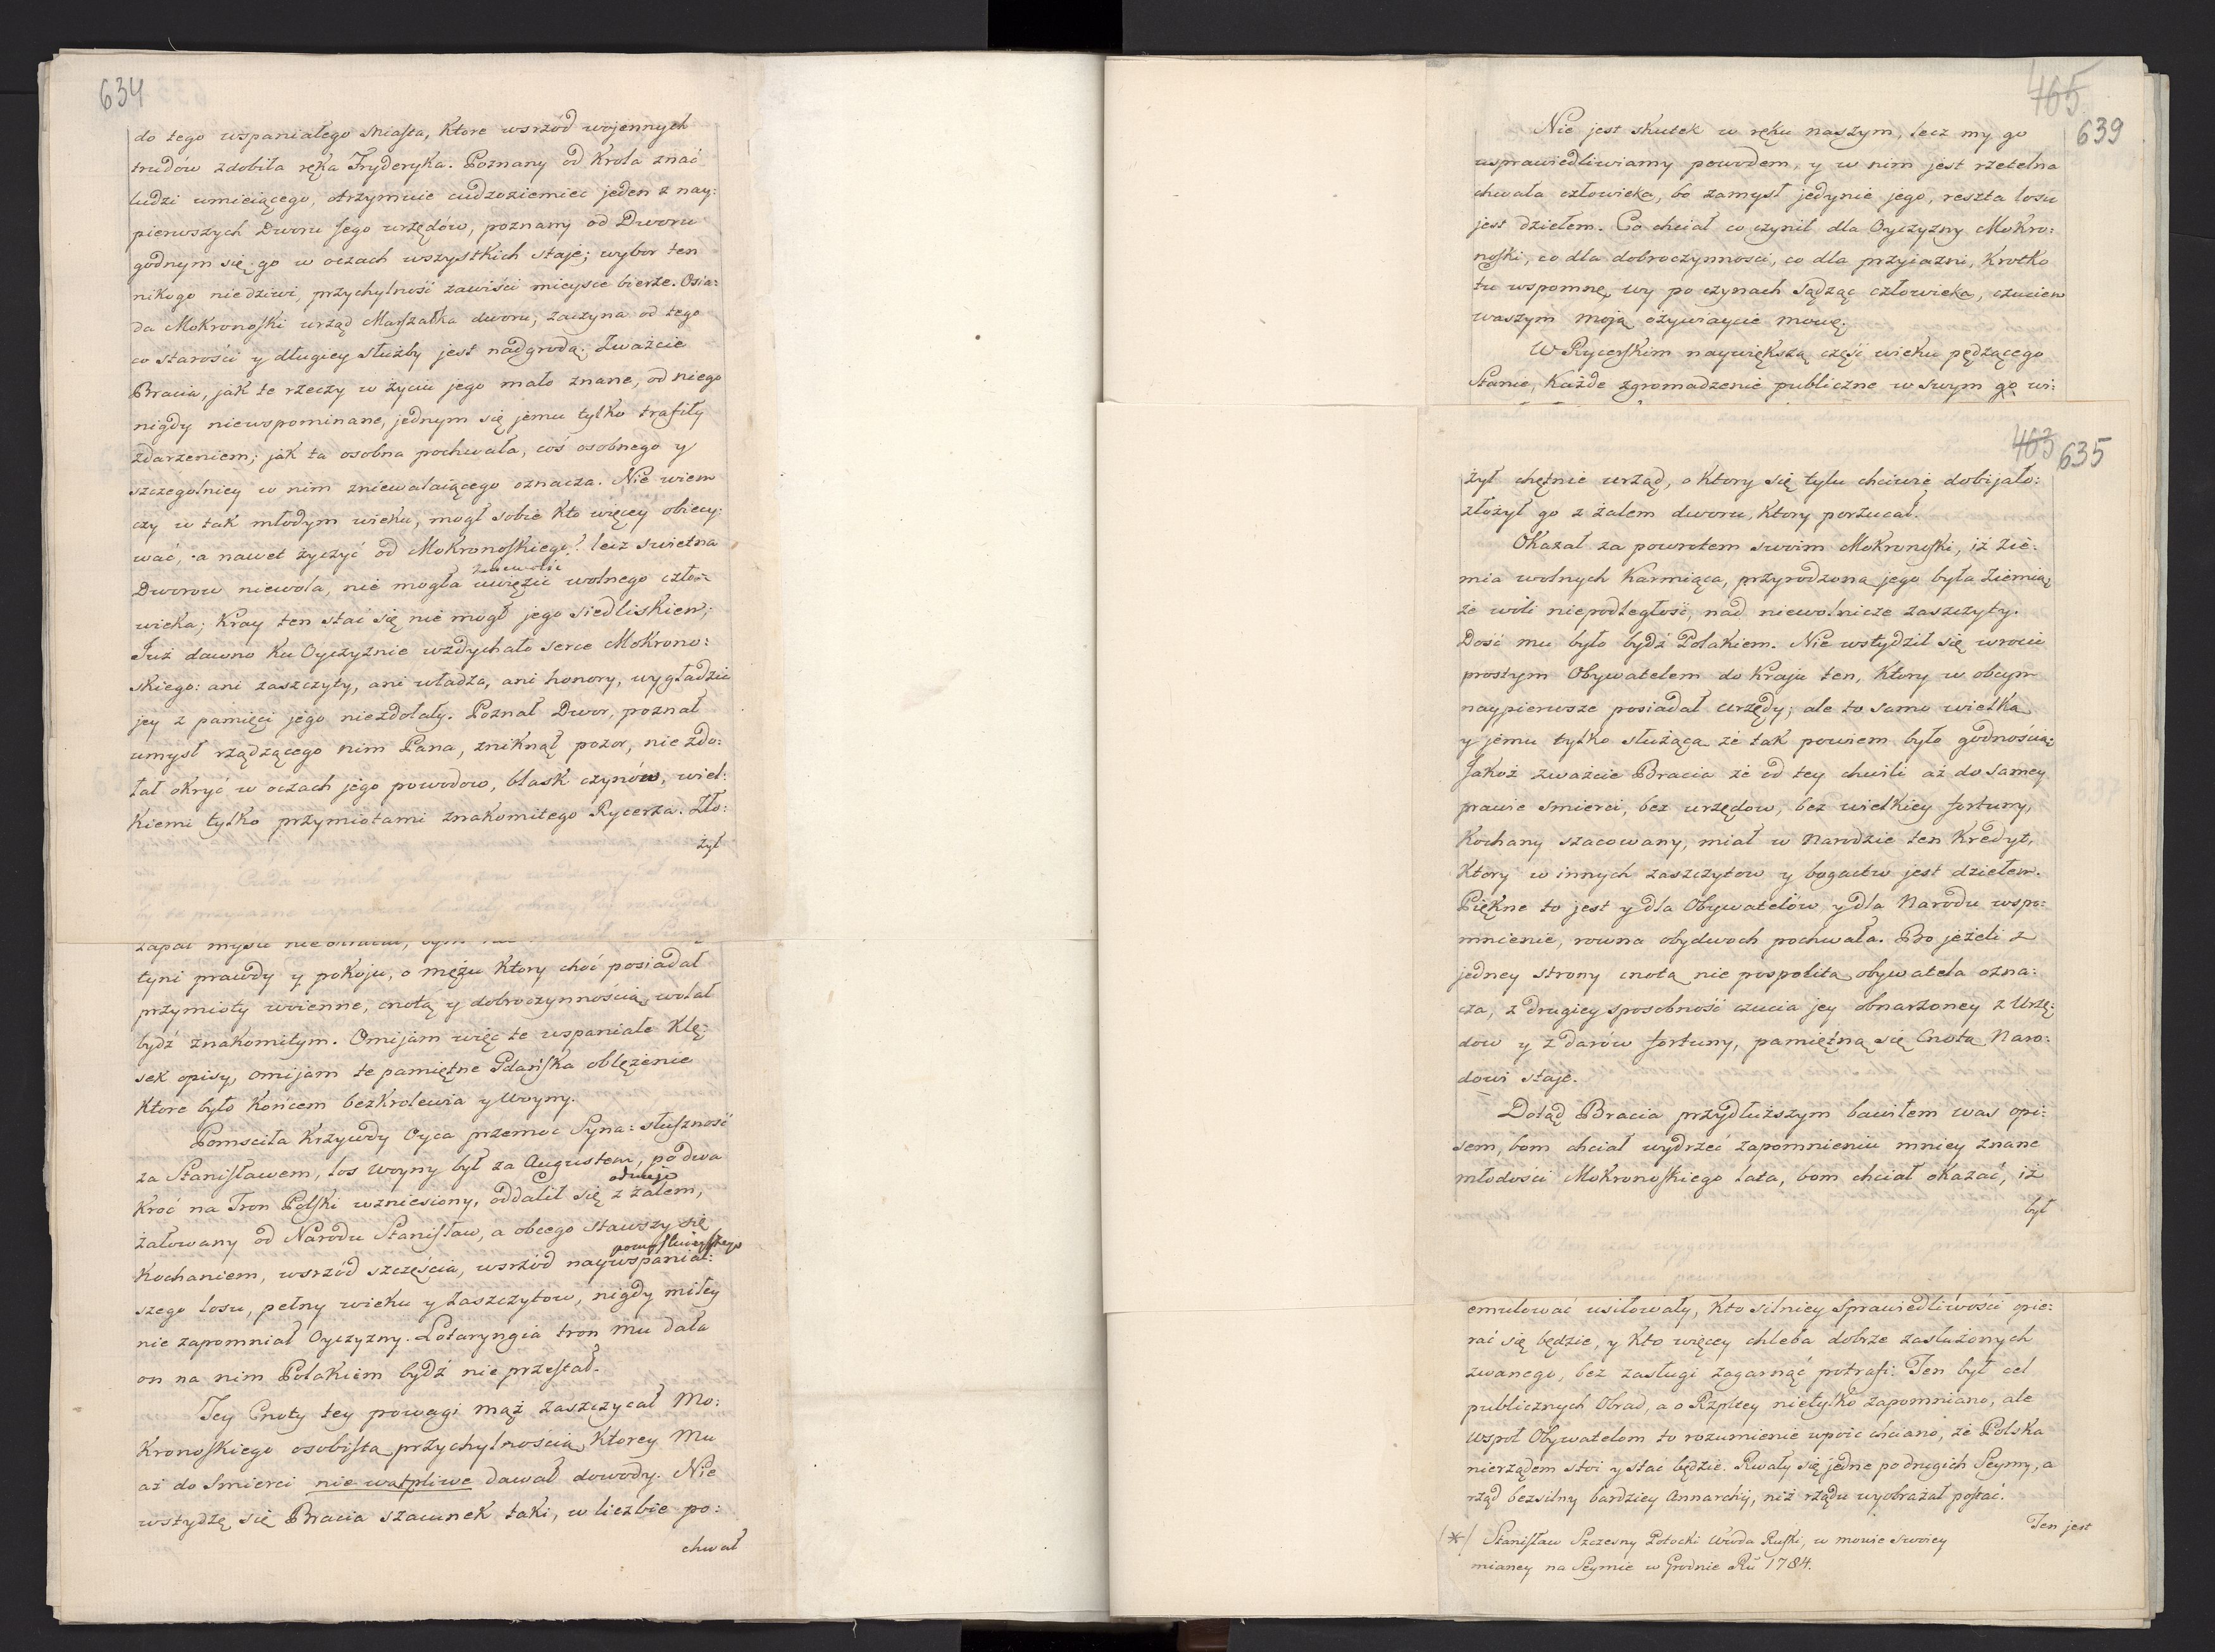 634
do tego wspaniałego Miasta, ktore wsrzód wojennych
trudów zdobiła ręka Fryderyka. Poznany od Krola znać
ludzi umieiącego, otrzymuie cudzoziemiec jeden z nay:
pierwszych Dworu jego urzędów, poznany od Dworu
godnym się go w oczach wszystkich staje; wybor ten
nikogo niedziwi, przychylność zawiści mieysce bierze. Osia:
da Mokronoski urząd Marszałka dworu; zaczyna od tego
co starości y długiey służby jest nadgrodą. Zważcie
Bracia, jak te rzeczy w życiu jego mało znane, od niego
nigdy niewspominane, jednym się jemu tylko trafiły
zdarzeniem; jak ta osobna pochwała, coś osobnego y
szczegolniey w nim zniewalaiącego oznacza. Nie wiem
czy w tak młodym wieku, mogł sobie kto więcey obiecy:
wać, a nawet życzyć od Mokronoskiego? lecz swietna
Dworow niewola, nie mogła uwięzić wolnego czło:
wieka; Kray ten stać się nie mogł jego siedliskiem;
Już dawno ku Oyczyznie wzdychało serce Mokrono:
skiego: ani zaszczyty, ani władza, ani honory, wygładzić
jey z pamięci jego niezdołały. Poznał Dwor, poznał
umysł rządzącego nim Pana, zniknął pozor, nie zdo:
łał okryć w oczach jego powodow, blask czynów, wiel:
kiemi tylko przymiotami znakomitego Rycerza. Zło:
żył
tyni prawdy y pokoju, o mężu ktory choć posiadał
przymioty woienne, cnotą y dobroczynnością wolał
bydź znakomitym. Omijam więc te wspaniałe klę:
sek opisy, omijam te pamiętne Gdańska oblężenie
ktore było końcem bezkrolewia y woyny.
Pomsciła krzywdy Oyca przemoc Syna: słuszność
za Stanisławem, los woyny był za Augustem, po dwa
kroć na Tron Polski wzniesiony, oddalił się z żalem,
żałowany od Narodu Stanisław, a obcego stawszy się
kochaniem, wsrzód szczęscia, wsrzód naywspanial:
szego losu, pełny wieku y zaszczytow, nigdy miłey
nie zapomniał Oyczyzny. Lotaryngia tron mu dała
on na nim Polakiem bydź nie przestał.
Tey Cnoty tey powagi mąż zaszczycał Mo:
kronoskiego osobistą przychylnością, ktorey mu
aż do Smierci nie wątpliwe dawał dowody. Nie
wstydzę się Bracia szacunek taki, w liczbie po:
chwał
465
639
Nie jest skutek w ręku naszym, lecz my go
usprawiedliwiamy powodem, y w nim jest rzetelna
chwała człowieka, bo zamysł jedynie jego, reszta losu
jest dziełem. Co chciał co czynił dla Oyczyzny Mokro:
noski, co dla dobroczynnosci, co dla przyiazni, krotko
tu wspomnę, wy po czynach sądząc człowieka, czuciem
waszym moją ożywiaycie mowę.
W Rycerskim naywiększą część wieku pędzącego
Stanie, każde zgromadzenie publiczne w swym go wi:
463
635
żył chętnie urząd, o ktory się tylu chciwie dobijało:
złożył go z żalem dworu, ktory porzucał.
Okazał za powrotem swoim Mokronoski, iż zie:
mia wolnych karmiąca, przyrodzona jego była ziemią
że woli niepodległość, nad niewolnicze zaszczyty.
Dość mu było bydź Polakiem. Nie wstydził się wrocić
prostym Obywatelem do kraju ten, ktory w obcym
naypierwsze posiadał urzędy; ale to samo wielką
y jemu tylko służącą że tak powiem było godnością;
Jakoż zważcie Bracia że od tey chwili aż do samey
prawie smierci, bez urzędow, bez wielkiey fortuny,
kochany szacowany, miał w Narodzie ten kredyt,
ktory w innych zaszczytow y bogactw jest dziełem.
Piękne to jest y dla Obywatelów y dla Narodu wspo:
mnienie, rowna obydwoch pochwała. Bo jeżeli z
jedney strony cnotą nie pospolitą obywatela ozna:
cza, z drugiey sposobność czucia jey obnarzoney z Urzę:
dow y z darow fortuny, pamiętną się Cnotą Naro:
dowi staje.
Dotąd Bracia przydłuższym bawiłem was opi:
sem, bom chciał wydrzeć zapomnieniu mniey znane
młodości Mokronoskiego lata, bom chciał okazać, iż
był
emulować usiłowały, kto silniey Sprawiedliwości opie:
rać się będzie, y kto więcey chleba dobrze zasłużonych
zwanego, bez zasługi zagarnąć potrafi. Ten był cel
publicznych Obrad, a o Rzpltey nietylko zapomniano, ale
Wspoł Obywatelom to rozumienie wpoić chciano, że Polska
nierządem stoi y stać będzie. Rwały się jedne po drugich Seymy, a
rząd bezsilny bardziey Annarchij, niż rządu wyobrażał postać.
Ten jest
(*) Stanisław Szczesny Potocki Wwda Ruski, w mowie swoiey
mianey na Seymie w Grodnie Ru 1784.